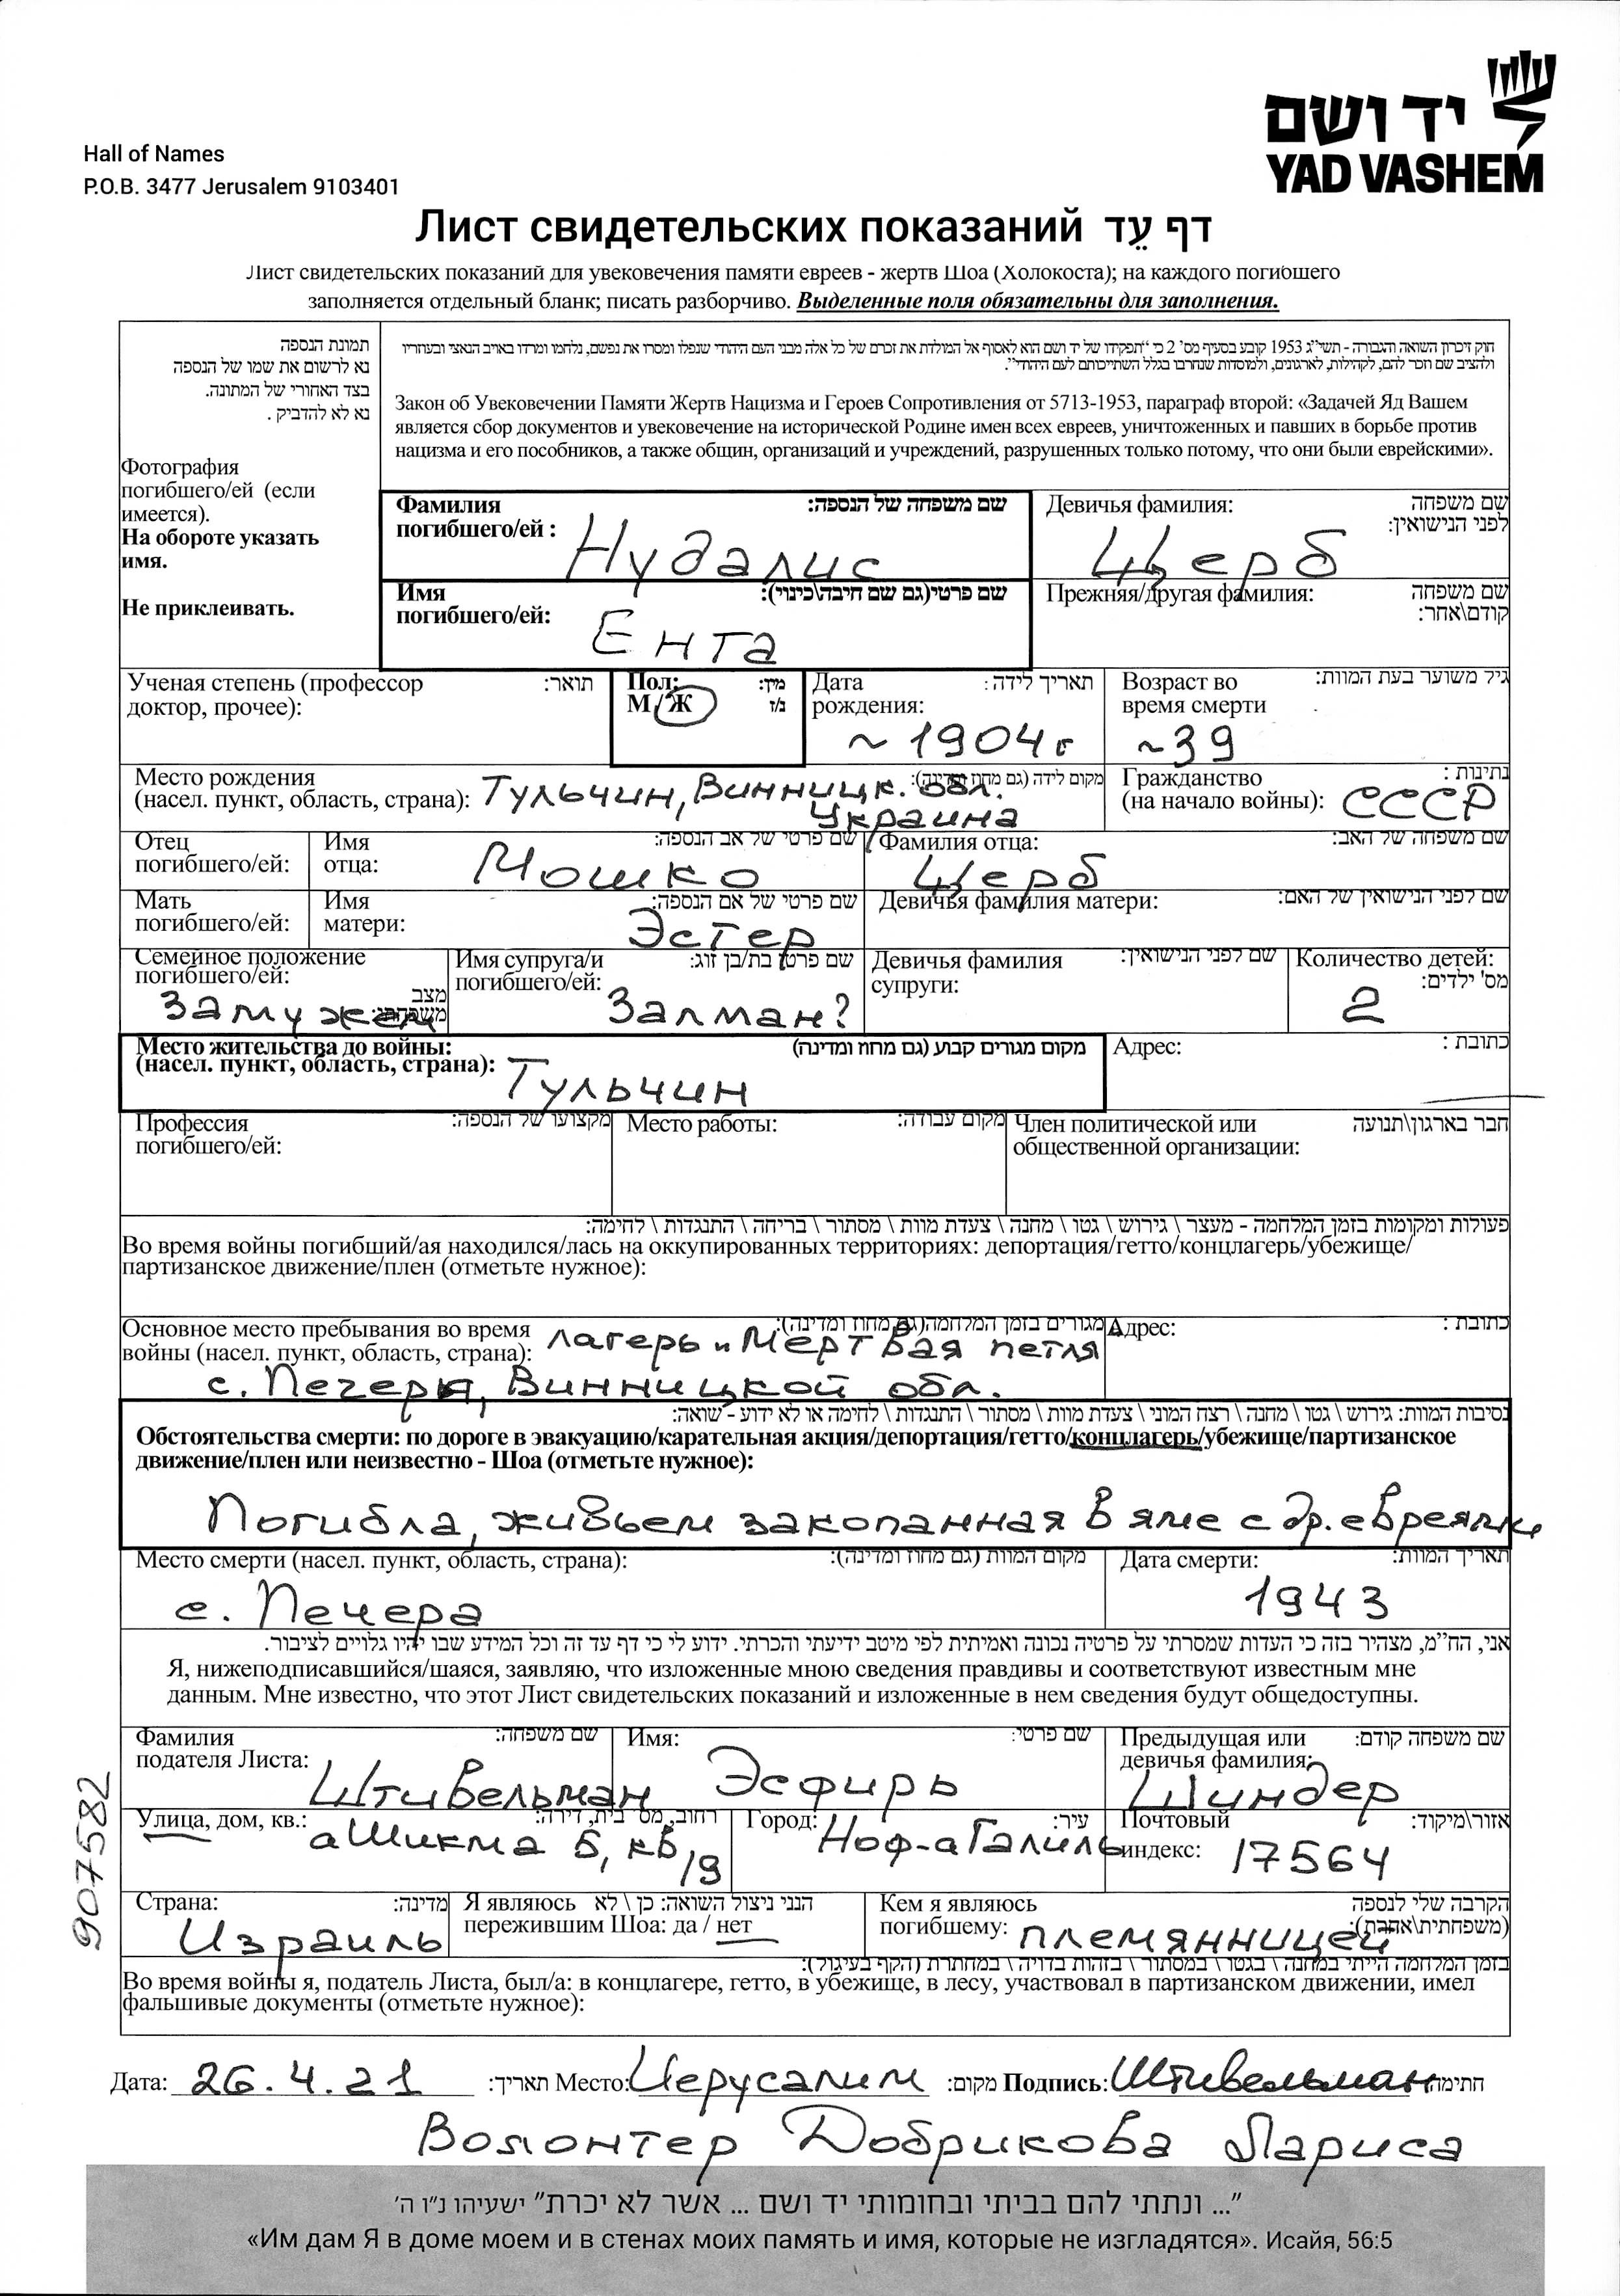 יד ושם
YAD VASHEM
Hall of Names
P.O.B. 3477 Jerusalem 9103401
Лист свидетельских показаний דף עֵד
Лист свидетельских показаний для увековечения памяти евреев - жертв Шоа (Холокоста); на каждого погибшего
заполняется отдельный бланк; писать разборчиво. Выделенные поля обязательны для заполнения.
תמונת הנספה
נא לרשום את שמו של הנספה
בצד האחורי של המתונה.
נא לא להדביק .
Фотография
погибшего/ей (если
имеется).
На обороте указать
имя.
Не приклеивать.
חוק זיכרון השואה והגבורה - תשי"ג 1953 קובע בסעיף מס' 2 כי "תפקידו של יד ושם הוא לאסוף אל המולדת את זכרם של כל אלה מבני העם היהודי שנפלו ומסרו את נפשם, נלחמו ומרדו באויב הנאצי ובעוזריו
ולהציב שם וזכר להם, לקהילות, לארגונים, ולמוסדות שנחרבו בגלל השתייכותם לעם היהודי".
Закон об Увековечении Памяти Жертв Нацизма и Героев Сопротивления от 5713-1953, параграф второй: «Задачей Яд Вашем
является сбор документов и увековечение на исторической Родине имен всех евреев, уничтоженных и павших в борьбе против
нацизма и его пособников, а также общин, организаций и учреждений, разрушенных только потому, что они были еврейскими».
Фамилия שם משפחה של הנספה:
погибшего/ей : Нудалис
Девичья фамилия: שם משפחה
לפני הנישואין:
Щерб
Имя שם פרטי(גם שם חיבה\כינוי):
погибшего/ей: Ента
Прежняя/другая фамилия: שם משפחה
קודם\אחר:
Ученая степень (профессор תואר:
доктор, прочее):
Пол: מין:
М/Ж נ/ז
Дата תאריך לידה:
рождения:
~ 1904 г
Возраст во גיל משוער בעת המוות:
время смерти
~39
Место рождения מקום לידה (גם מחוז ומדינה):
(насел. пункт, область, страна): Тульчин, Винницк. обл.
Украина
Гражданство נתינות :
(на начало войны): СССР
Отец
погибшего/ей:
Имя שם פרטי של אב הנספה:
отца: Мошко
Фамилия отца: שם משפחה של האב:
Щерб
Мать
погибшего/ей:
Имя שם פרטי של אם הנספה:
матери: Эстер
Девичья фамилия матери: שם לפני הנישואין של האם:
Семейное положение
погибшего/ей:
מצב
משפחתי:
Замужем
Имя супруга/и שם פרטי בת/בן זוג:
погибшего/ей: Залман?
Девичья фамилия שם לפני הנישואין:
супруги:
Количество детей:
מס' ילדים:
2
Место жительства до войны: מקום מגורים קבוע (גם מחוז ומדינה)
(насел. пункт, область, страна): Тульчин
Адрес: כתובת :
Профессия מקצועו של הנספה:
погибшего/ей:
Место работы: מקום עבודה:
Член политической или חבר בארגון\תנועה
общественной организации:
פעולות ומקומות בזמן המלחמה - מעצר \ גירוש \ גטו \ מחנה \ צעדת מוות \ מסתור \ בריחה \ התנגדות \ לחימה:
Во время войны погибший/ая находился/лась на оккупированных территориях: депортация/гетто/концлагерь/убежище/
партизанское движение/плен (отметьте нужное):
Основное место пребывания во время מגורים בזמן המלחמה(גם מחוז ומדינה):
войны (насел. пункт, область, страна): лагерь "Мертвая петля
с. Печеры, Винницкой обл.
Адрес: כתובת :
נסיבות המוות: גירוש \ גטו \ מחנה \ רצח המוני \ צעדת מוות \ מסתור \ התנגדות \ לחימה או לא ידוע - שואה:
Обстоятельства смерти: по дороге в эвакуацию/карательная акция/депортация/гетто/концлагерь/убежище/партизанское
движение/плен или неизвестно - Шоа (отметьте нужное):
Погибла, живьем закопанная в яме с др. евреями
Место смерти (насел. пункт, область, страна): מקום המוות (גם מחוז ומדינה):
с. Печера
Дата смерти: תאריך המוות:
1943
אני, הח"מ, מצהיר בזה כי העדות שמסרתי על פרטיה נכונה ואמיתית לפי מיטב ידיעתי והכרתי. ידוע לי כי דף עד זה וכל המידע שבו יהיו גלויים לציבור.
Я, нижеподписавшийся/шаяся, заявляю, что изложенные мною сведения правдивы и соответствуют известным мне
данным. Мне известно, что этот Лист свидетельских показаний и изложенные в нем сведения будут общедоступны.
Фамилия שם משפחה:
подателя Листа:
Штивельман
Имя: שם פרטי:
Эсфирь
Предыдущая или שם משפחה קודם:
девичья фамилия:
Шиндер
Улица, дом, кв.: רחוב, מס' בית, דירה:
аШикма 5, кв 19
Город: עיר:
Ноф-аГалиль
Почтовый אזור\מיקוד:
индекс: 17564
Страна: מדינה:
Израиль
Я являюсь הנני ניצול השואה: כן \ לא
пережившим Шоа: да / нет
Кем я являюсь הקרבה שלי לנספה
погибшему: (משפחתית\אחרת):
племянницей
בזמן המלחמה הייתי במחנה \ בגטו \ במסתור \ בזהות בדויה \ במחתרת (הקף בעיגול):
Во время войны я, податель Листа, был/а: в концлагере, гетто, в убежище, в лесу, участвовал в партизанском движении, имел
фальшивые документы (отметьте нужное):
907582
Дата: 26.4.21 תאריך: Место: Иерусалим מקום: Подпись: Штивельман חתימה
Волонтер Добрикова Лариса
"... ונתתי להם בביתי ובחומותי יד ושם ... אשר לא יכרת" ישעיהו נ"ו ה'
«Им дам Я в доме моем и в стенах моих память и имя, которые не изгладятся». Исайя, 56:5